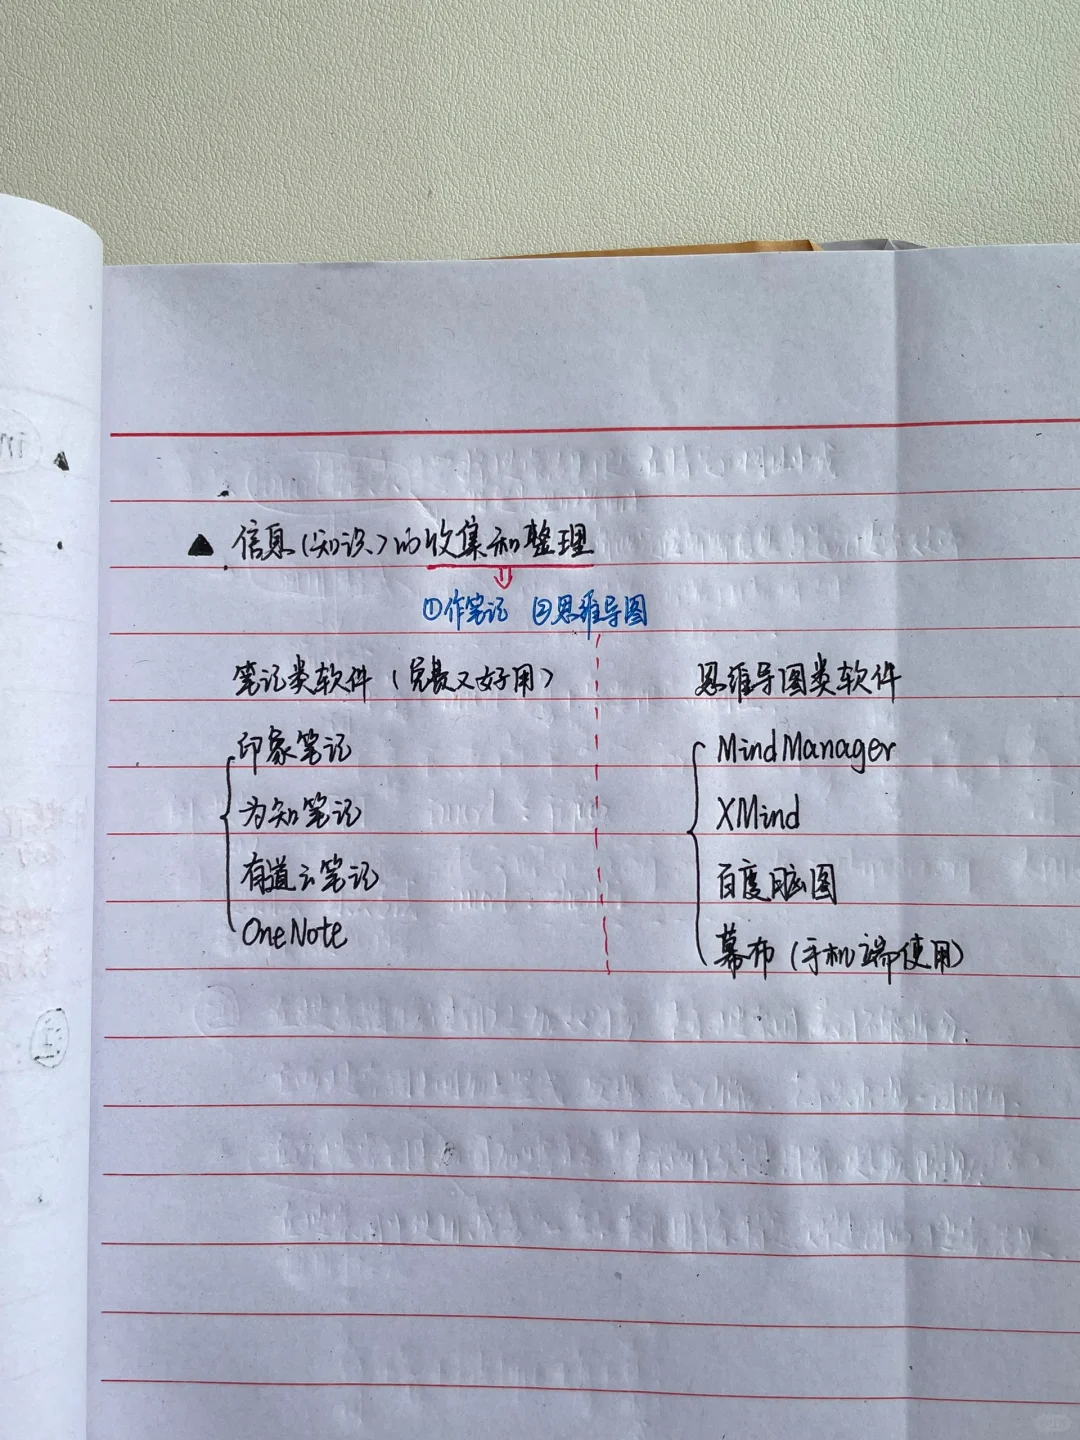 ▲ 信息(知识)的收集和整理
①作笔记 ②思维导图
笔记类软件(免费又好用)
印象笔记
为知笔记
有道云笔记
OneNote
思维导图类软件
MindManager
XMind
百度脑图
幕布(手机端使用)